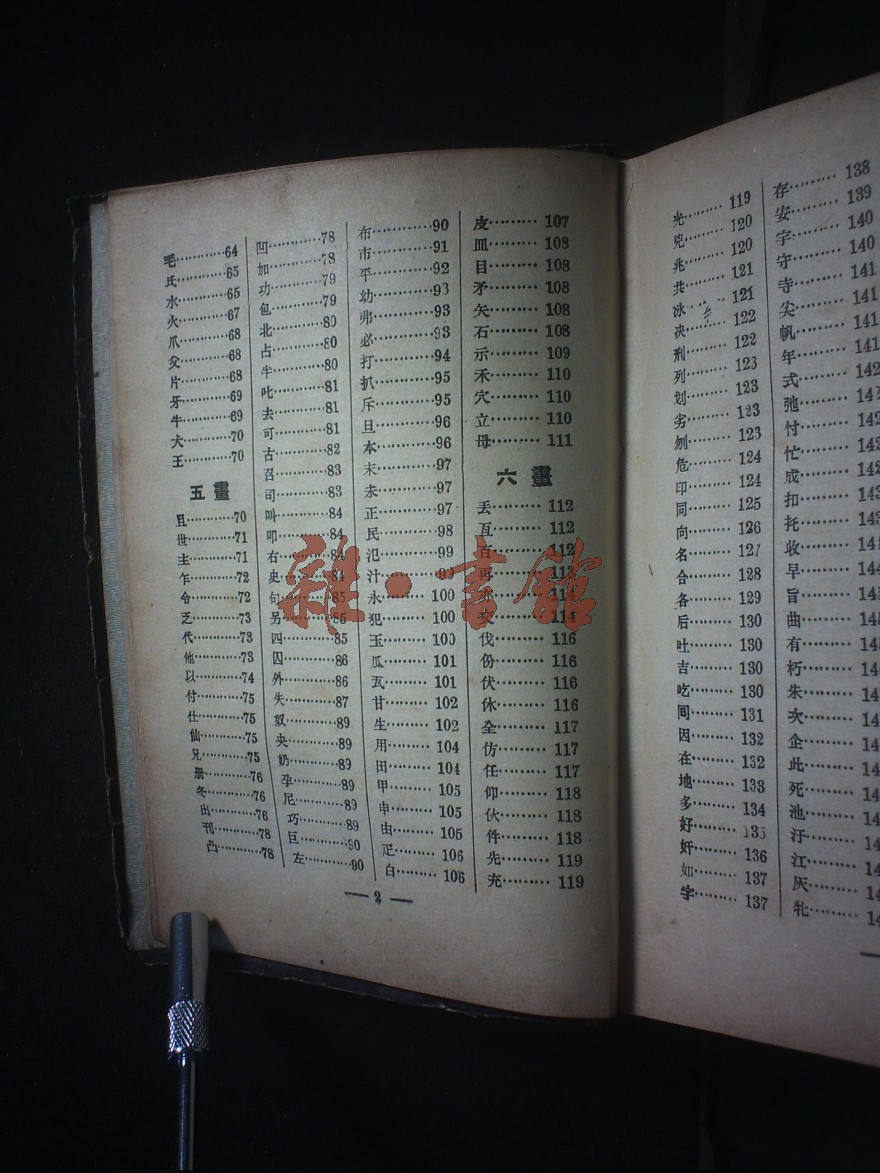 毛…………64
氏…………65
水…………65
火…………67
爪…………68
父…………68
片…………68
牙…………69
牛…………69
犬…………70
王…………70
五畫
且…………70
世…………71
主…………71
乍…………72
令…………72
乏…………73
代…………73
他…………73
以…………74
付…………75
仕…………75
仙…………75
兄…………75
册…………76
冬…………76
出…………76
刊…………78
凸…………78
凹…………78
加…………78
功…………79
包…………79
北…………80
占…………80
半…………80
叱…………81
去…………81
可…………81
古…………82
召…………83
司…………83
叫…………84
叩…………84
右…………84
史…………84
句…………85
另…………85
四…………85
囚…………86
外…………86
失…………87
奴…………89
央…………89
奶…………89
孕…………89
尼…………89
巧…………89
巨…………90
左…………90
布…………90
市…………91
平…………92
幼…………93
弗…………93
必…………93
打…………94
扒…………95
斥…………95
旦…………96
本…………96
末…………97
未…………97
正…………97
民…………98
氾…………99
汁…………99
永……… 100
犯……… 100
玉……… 100
瓜……… 101
瓦……… 101
甘……… 102
生……… 102
用……… 104
田……… 104
甲……… 105
申……… 105
由……… 105
疋……… 106
白……… 106
皮……… 107
皿……… 108
目……… 108
矛……… 108
矢……… 108
石……… 108
示……… 109
禾……… 110
穴……… 110
立……… 110
母……… 111
六畫
丢……… 112
亙……… 112
百……… 112
再……… 113
亦……… 114
交……… 114
伐……… 116
份……… 116
伏……… 116
休……… 116
全……… 117
仿……… 117
任……… 117
仰……… 118
伙……… 118
件……… 118
先……… 119
充……… 119
— 2 —
光……… 119
兇……… 120
兆……… 120
共……… 121
冰……… 121
决……… 122
刑……… 122
列……… 123
划……… 123
劣……… 123
刎……… 123
危……… 124
印……… 124
同……… 125
向……… 126
名……… 127
合……… 128
各……… 129
后……… 130
吐……… 130
吉……… 130
吃……… 130
囘……… 131
因……… 132
在……… 132
地……… 133
多……… 134
好……… 135
奸……… 136
如……… 137
字……… 137
存……… 138
安……… 139
宇……… 140
守……… 140
寺……… 141
尖……… 141
帆……… 141
年……… 141
式……… 142
弛………
忖……… 142
忙……… 142
成……… 142
扣……… 143
托………
收………
早………
旨………
曲………
有………
朽………
朱………
次………
企………
此………
死………
池………
汙………
江………
灰………
牝………
雜·書館